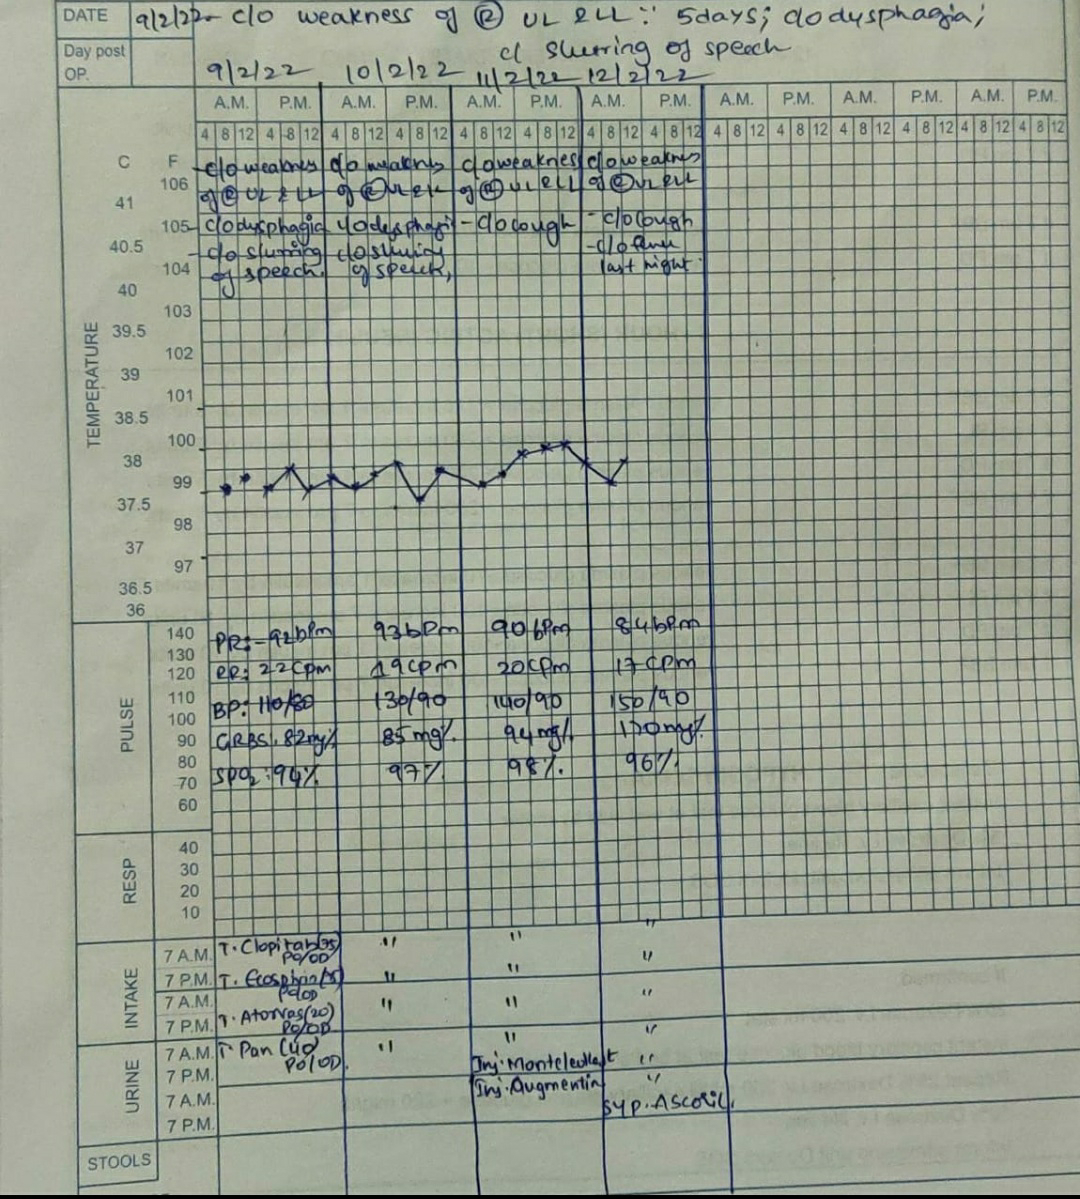 DATE 9/2/22- c/o weakness of Ⓡ UL & LL ∵ 5days; c/o dysphagia;
Day post OP. c/ slurring of speech
9/2/22 10/2/22 11/2/22 12/2/22
A.M. P.M. A.M. P.M. A.M. P.M. A.M. P.M. A.M. P.M. A.M. P.M. A.M. P.M.
4 8 12 4 8 12 4 8 12 4 8 12 4 8 12 4 8 12 4 8 12 4 8 12 4 8 12 4 8 12 4 8 12 4 8 12 4 8 12 4 8 12
C F -c/o weakness c/o weakness c/o weakness c/o weakness
106 of Ⓡ UL & LL of Ⓡ UL & LL of Ⓡ UL & LL of Ⓡ UL & LL
41
105 c/o dysphagia c/o dysphagia -c/o cough -c/o cough
40.5 -c/o slurring c/o slurring -c/o fever
104 of speech. of speech, last night
40
103
39.5
102
39
101
38.5
100
38
99
37.5
98
37
97
36.5
36
TEMPERATURE
PULSE
140 PR:-92bpm 93bpm 90bpm 84bpm
130
120 RR: 22cpm 19cpm 20cpm 17cpm
110 BP: 110/80 130/90 140/90 150/90
100
90 GRBS: 82mg% 85mg% 94mg%
80
70 SPO2: 94% 97% 98% 96%
60
RESP
40
30
20
10
INTAKE
7 A.M. T. Clopitab(75) " " "
PO/OD
7 P.M. T. Ecosprin(75) " " "
PO/OD
7 A.M. T. Atorvas(20) " " "
7 P.M. PO/OD
URINE
7 A.M. T. Pan (40) " " "
PO/OD.
7 P.M. Inj. Montelukast "
7 A.M. Inj. Augmentin "
Syp. Ascoril.
7 P.M.
STOOLS